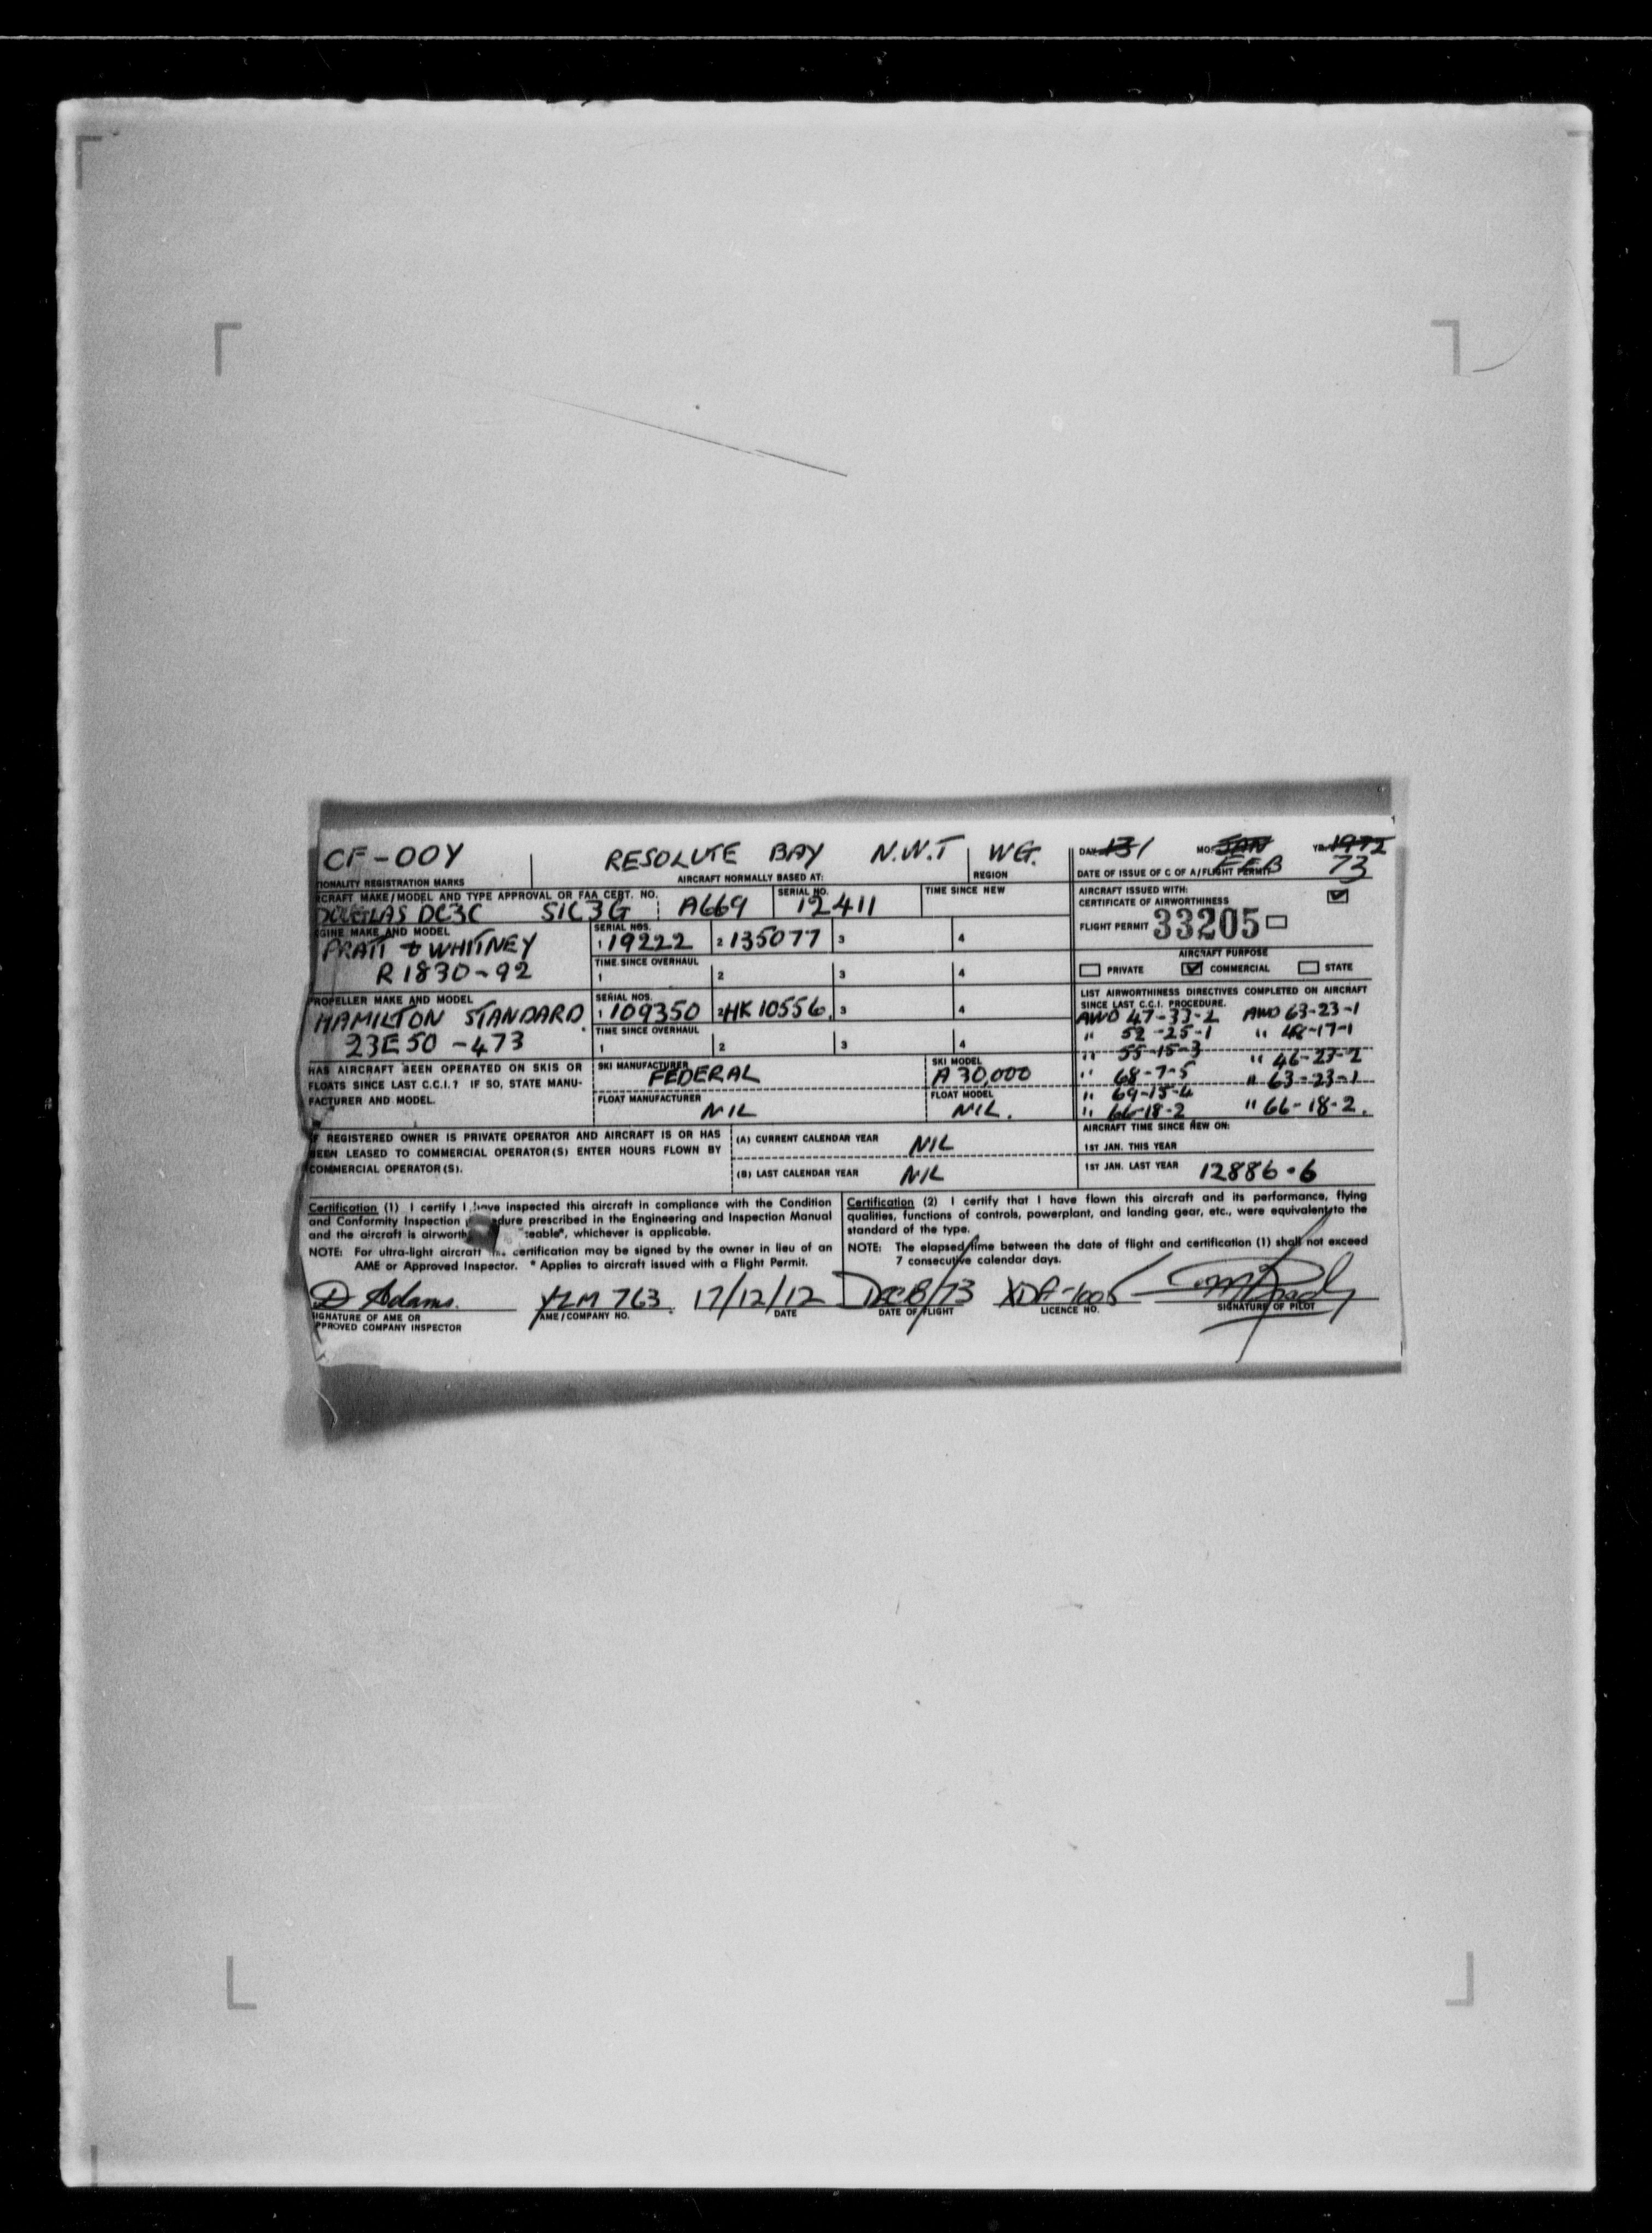 CF-OOY RESOLUTE BAY N.W.T WG. DAY 13 1 MO. JAN FEB YR. 1972 73
TIONALITY REGISTRATION MARKS AIRCRAFT NORMALLY BASED AT: REGION DATE OF ISSUE OF C OF A/FLIGHT PERMIT
CRAFT MAKE/MODEL AND TYPE APPROVAL OR FAA CERT. NO. SERIAL NO. TIME SINCE NEW
DOUGLAS DC3C S1C3G A669 12411
AIRCRAFT ISSUED WITH:
CERTIFICATE OF AIRWORTHINESS
FLIGHT PERMIT 33205
GINE MAKE AND MODEL SERIAL NOS.
PRATT & WHITNEY 1 19222 2 135077 3 4
R1830-92
TIME SINCE OVERHAUL
1 2 3 4
AIRCRAFT PURPOSE
PRIVATE COMMERCIAL STATE
PROPELLER MAKE AND MODEL SERIAL NOS.
HAMILTON STANDARD. 1 109350 2 HK 10556. 3 4
23E50-473
TIME SINCE OVERHAUL
1 2 3 4
LIST AIRWORTHINESS DIRECTIVES COMPLETED ON AIRCRAFT
SINCE LAST C.C.I. PROCEDURE.
AWD 47-33-2 AWD 63-23-1
" 52-25-1 " 48-17-1
" 55-15-3 " 46-23-2
" 68-7-5 " 63-23-1
" 69-15-4
" 66-18-2 " 66-18-2.
HAS AIRCRAFT BEEN OPERATED ON SKIS OR
FLOATS SINCE LAST C.C.I.? IF SO, STATE MANU-
FACTURER AND MODEL.
SKI MANUFACTURER FEDERAL SKI MODEL A 30,000
FLOAT MANUFACTURER NIL FLOAT MODEL NIL.
IF REGISTERED OWNER IS PRIVATE OPERATOR AND AIRCRAFT IS OR HAS
BEEN LEASED TO COMMERCIAL OPERATOR(S) ENTER HOURS FLOWN BY
COMMERCIAL OPERATOR(S).
(A) CURRENT CALENDAR YEAR NIL
(B) LAST CALENDAR YEAR NIL
AIRCRAFT TIME SINCE NEW ON:
1ST JAN. THIS YEAR
1ST JAN. LAST YEAR 12886.6
Certification (1) I certify I have inspected this aircraft in compliance with the Condition
and Conformity Inspection edure prescribed in the Engineering and Inspection Manual
and the aircraft is airworth teable*, whichever is applicable.
NOTE: For ultra-light aircraft this certification may be signed by the owner in lieu of an
AME or Approved Inspector. * Applies to aircraft issued with a Flight Permit.
Certification (2) I certify that I have flown this aircraft and its performance, flying
qualities, functions of controls, powerplant, and landing gear, etc., were equivalent to the
standard of the type.
NOTE: The elapsed time between the date of flight and certification (1) shall not exceed
7 consecutive calendar days.
D Adams. 763 17/12/12 Dec 8/73
SIGNATURE OF AME OR AME/COMPANY NO. DATE DATE OF FLIGHT LICENCE NO. SIGNATURE OF PILOT
PPROVED COMPANY INSPECTOR